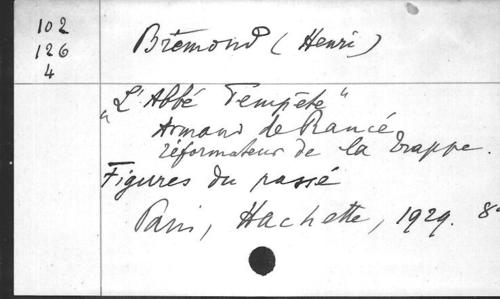 102
126
4
Brémond (Henri)
"L'Abbé Tempête"
Armand de Rancé
réformateur de la Trappe.
Figures du passé
Paris, Hachette, 1929. 8°